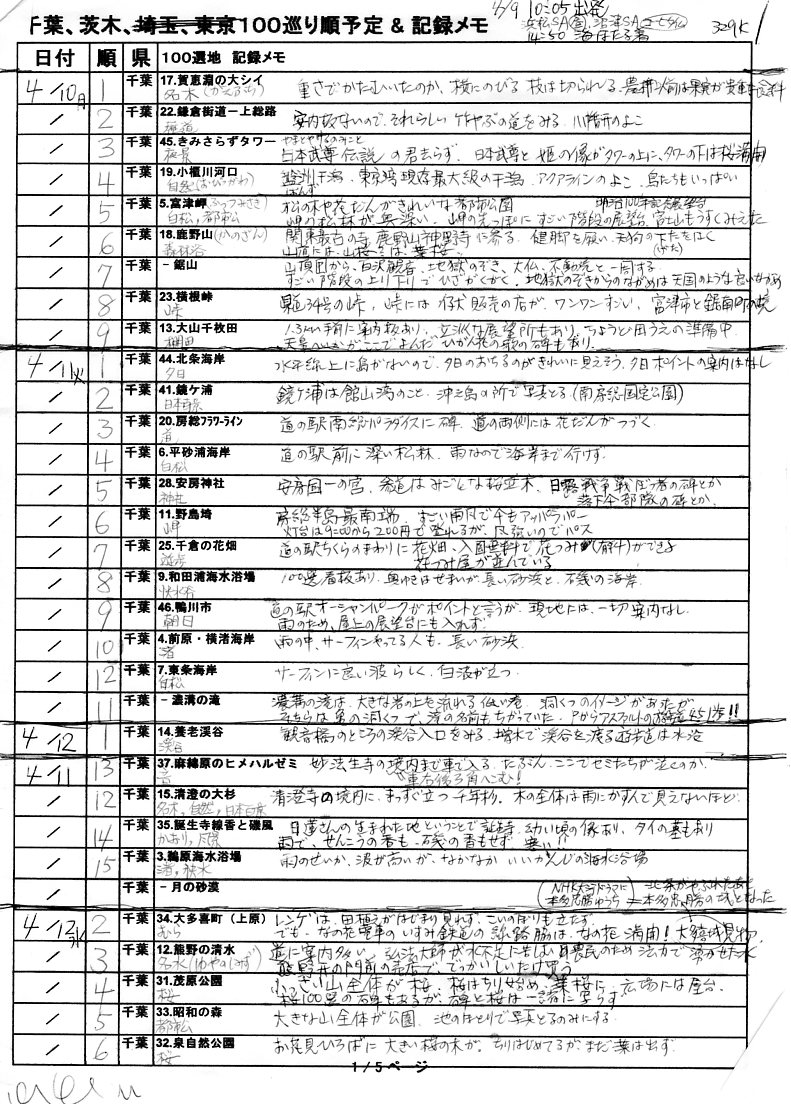 4/9 10:05 出発
千葉、茨木、埼玉、東京100巡り順予定 & 記録メモ
浜松SA 沼津SA
14:50 海ほたる着
329K
日付 順 県 100選地 記録メモ
4/10月 1 千葉 17.賀恵淵の大シイ
名木 重さでかたむいたのか、横にのびる枝は切られる。
2 千葉 22.鎌倉街道－上総路
案内板ないので、それらしい竹やぶの道をみる。
3 千葉 45.きみさらずタワー
夜景 日本武尊伝説の君去らず。日本武尊と姫の像がタワーの上に、タワーの下は桜満開
4 千葉 19.小櫃川河口
自然 盤洲干潟、東京湾現存最大級の干潟、アクアラインのよこ、鳥たちもいっぱい
ばんず
5 千葉 5.富津岬(ふっつみさき)
白松、都市公 松の木や花だんがきれいな都市公園 明治100年記念展望台
岬の松林が奥深い、岬の先っぽにすごい階段の展望台、富士山もうすくみえた
6 千葉 18.鹿野山
森林浴 関東最古の寺 鹿野山神野寺に参る。健脚を願い、天狗の下たをはく
山頂には、山桜 葉桜
7 千葉 - 鋸山
山頂Pから、百尺観音、地獄のぞき、大仏、不動滝と一周する
すごい階段の上り下りでひざがくがく、地獄のぞきからのながめは天国のような良いながめ
8 千葉 23.横根峠
峠 県道34号の峠、峠には仔犬販売の店が、ワンワンすごい、富津市と鋸南町の境
9 千葉 13.大山千枚田
棚田 1.3km手前に案内板あり、立派な展望所もあり、ちょうど田うえの準備中
4/11火 1 千葉 44.北条海岸
夕日 水平線上に島がないので、夕日のおちるのがきれいに見えそう、夕日ポイントの案内はなし
2 千葉 41.鏡ケ浦
日本百景 鏡ヶ浦は館山湾のこと、沖之島の所で写真とる(南房総国定公園)
3 千葉 20.房総ﾌﾗﾜｰﾗｲﾝ
道 道の駅南総パラダイスに碑、道の両側には花だんがつづく
4 千葉 6.平砂浦海岸
白松 道の駅前に深い松林、雨なので海岸まで行けず
5 千葉 28.安房神社
神社 安房国一の宮、参道はみごとな桜並木、日露戦争戦 者の碑とか
落下傘部隊の碑とか。
6 千葉 11.野島埼
岬 房総半島最南端、すごい雨風で今もアッパラパー
灯台は9:00から200円で登れるが、風強いのでパス
7 千葉 25.千倉の花畑
遊歩 道の駅ちくらのまわりに花畑、入園無料で花つみ(有料)ができる
花つみ屋が並んでいる
8 千葉 9.和田浦海水浴場
快水浴 100選看板あり、奥ゆきはせまいが長い砂浜と、石磯の海岸
9 千葉 46.鴨川市
朝日 道の駅オーシャンパークがポイントと言うが、現地には、一切案内なし
雨のため、屋上の展望台にも入れず
10 千葉 4.前原・横渚海岸
渚 雨の中、サーフィンやってる人も、長い砂浜
12 千葉 7.東条海岸
白松 サーフィンに良い波らしく、白波が立つ
11 千葉 - 濃溝の滝
濃溝の滝は、大きな岩の上を流れる低い滝、洞くつのイメージがあったが
そちらは亀の洞くつで、滝の名前もちがっていた。
4/12 1 千葉 14.養老渓谷
渓谷 観音橋のところの渓谷入口をみる、増水で渓谷を渡る遊歩道は水没
4/11 13 千葉 37.麻綿原のヒメハルゼミ
音 妙法生寺の境内まで車で入る、たぶん、ここでセミたちが泣くのか
車右後ろ角へこむ！
12 千葉 15.清澄の大杉
名木、自然、日本百景 清澄寺の境内に、まっすぐ立つ千年杉。木の全体は雨にかすんで見えないほど
14 千葉 35.誕生寺線香と磯風
かおり、風景 日蓮さんの生まれた地ということで誕生寺、幼い頃の像あり、タイの墓もあり
雨で、せんこうの香も、石磯の香もせず、寒い!!
15 千葉 3.鵜原海水浴場
渚、快水 雨のせいか、波が高いが、なかなかいいかんじの海水浴場
千葉 - 月の砂漠
4/12水 2 千葉 34.大多喜町（上原）
むら レンゲは、田植えがはじまり見れず、こいのぼりもまだ
でも、なの花電車のいすみ鉄道の線路脇は、なの花満開！大多喜城見物
3 千葉 12.熊野の清水
名水(ゆやのしみず) 道に案内多い、弘法大師が水不足に苦しむ農民のため法力で湧かせた水
門前の売店で、でっかいしいたけ買う
4 千葉 31.茂原公園
桜 小さい山全体が桜、桜はちり始め、葉桜に、広場には屋台
桜100選の碑もあるが、碑と桜は一緒に写らず
5 千葉 33.昭和の森
都市公 大きな山全体が公園、池のほとりで写真とるのみにする
6 千葉 32.泉自然公園
桜 お花見ひろばに大きい桜の木が、ちりはじめてるが、まだ葉は出ず
1/5ページ